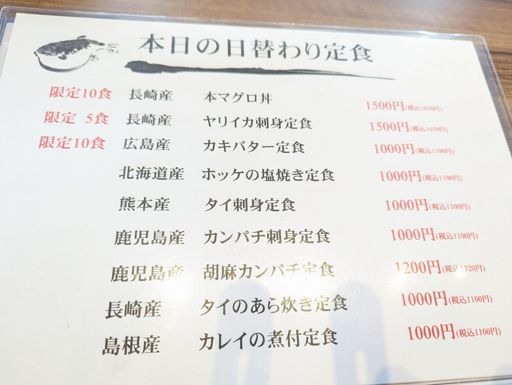 本日の日替わり定食
限定10食 長崎産 本マグロ丼 1500円(税込1650円)
限定 5食 長崎産 ヤリイカ刺身定食 1500円(税込1650円)
限定10食 広島産 カキバター定食 1000円(税込1100円)
北海道産 ホッケの塩焼き定食 1000円(税込1100円)
熊本産 タイ刺身定食 1000円(税込1100円)
鹿児島産 カンパチ刺身定食 1000円(税込1100円)
鹿児島産 胡麻カンパチ定食 1200円(税込1320円)
長崎産 タイのあら炊き定食 1000円(税込1100円)
島根産 カレイの煮付定食 1000円(税込1100円)